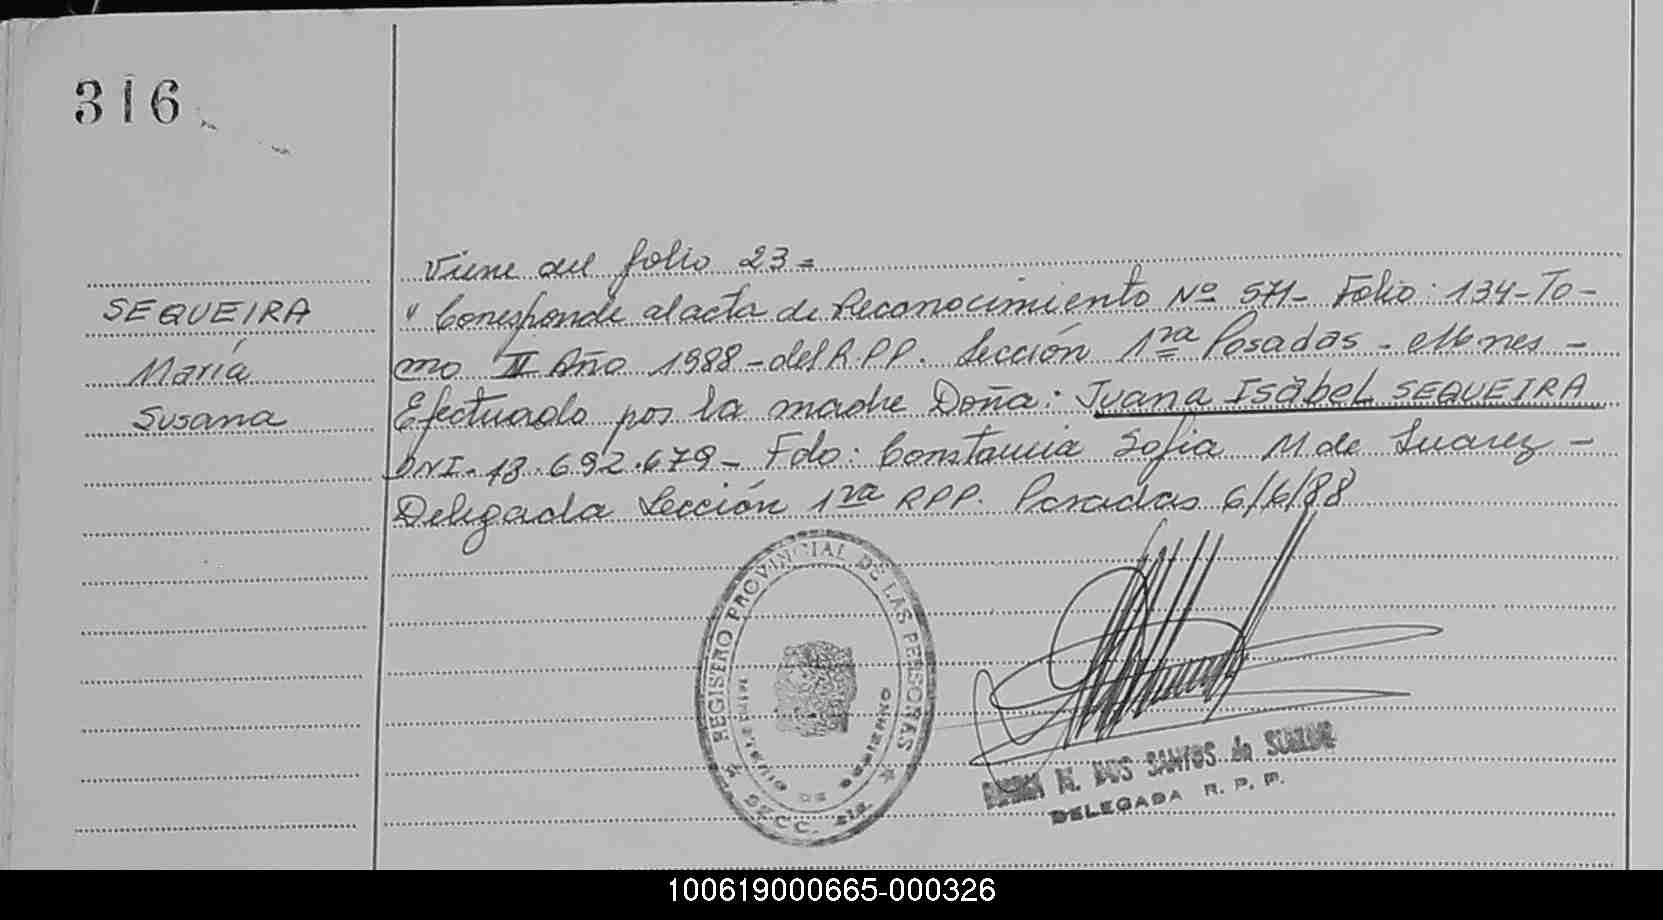 316
Viene del folio 23=
SEQUEIRA
María
Susana
"Corresponde al acta de Reconocimiento Nº 571- Folio: 134-To-
mo II Año 1988-del R.PP. Sección 1ra Posadas - Mnes -
Efectuado por la madre Doña: Juana Isabel SEQUEIRA
DNI. 13.692.679- Fdo: Constancia Sofia M de Suarez -
Delegada Sección 1ra RPP. Posadas 6/6/88
REGISTRO PROVINCIAL DE LAS PERSONAS
MINISTERIO DE GOBIERNO
SECC.
M. DOS SANTOS de
DELEGADA R. P. P.
100619000665-000326